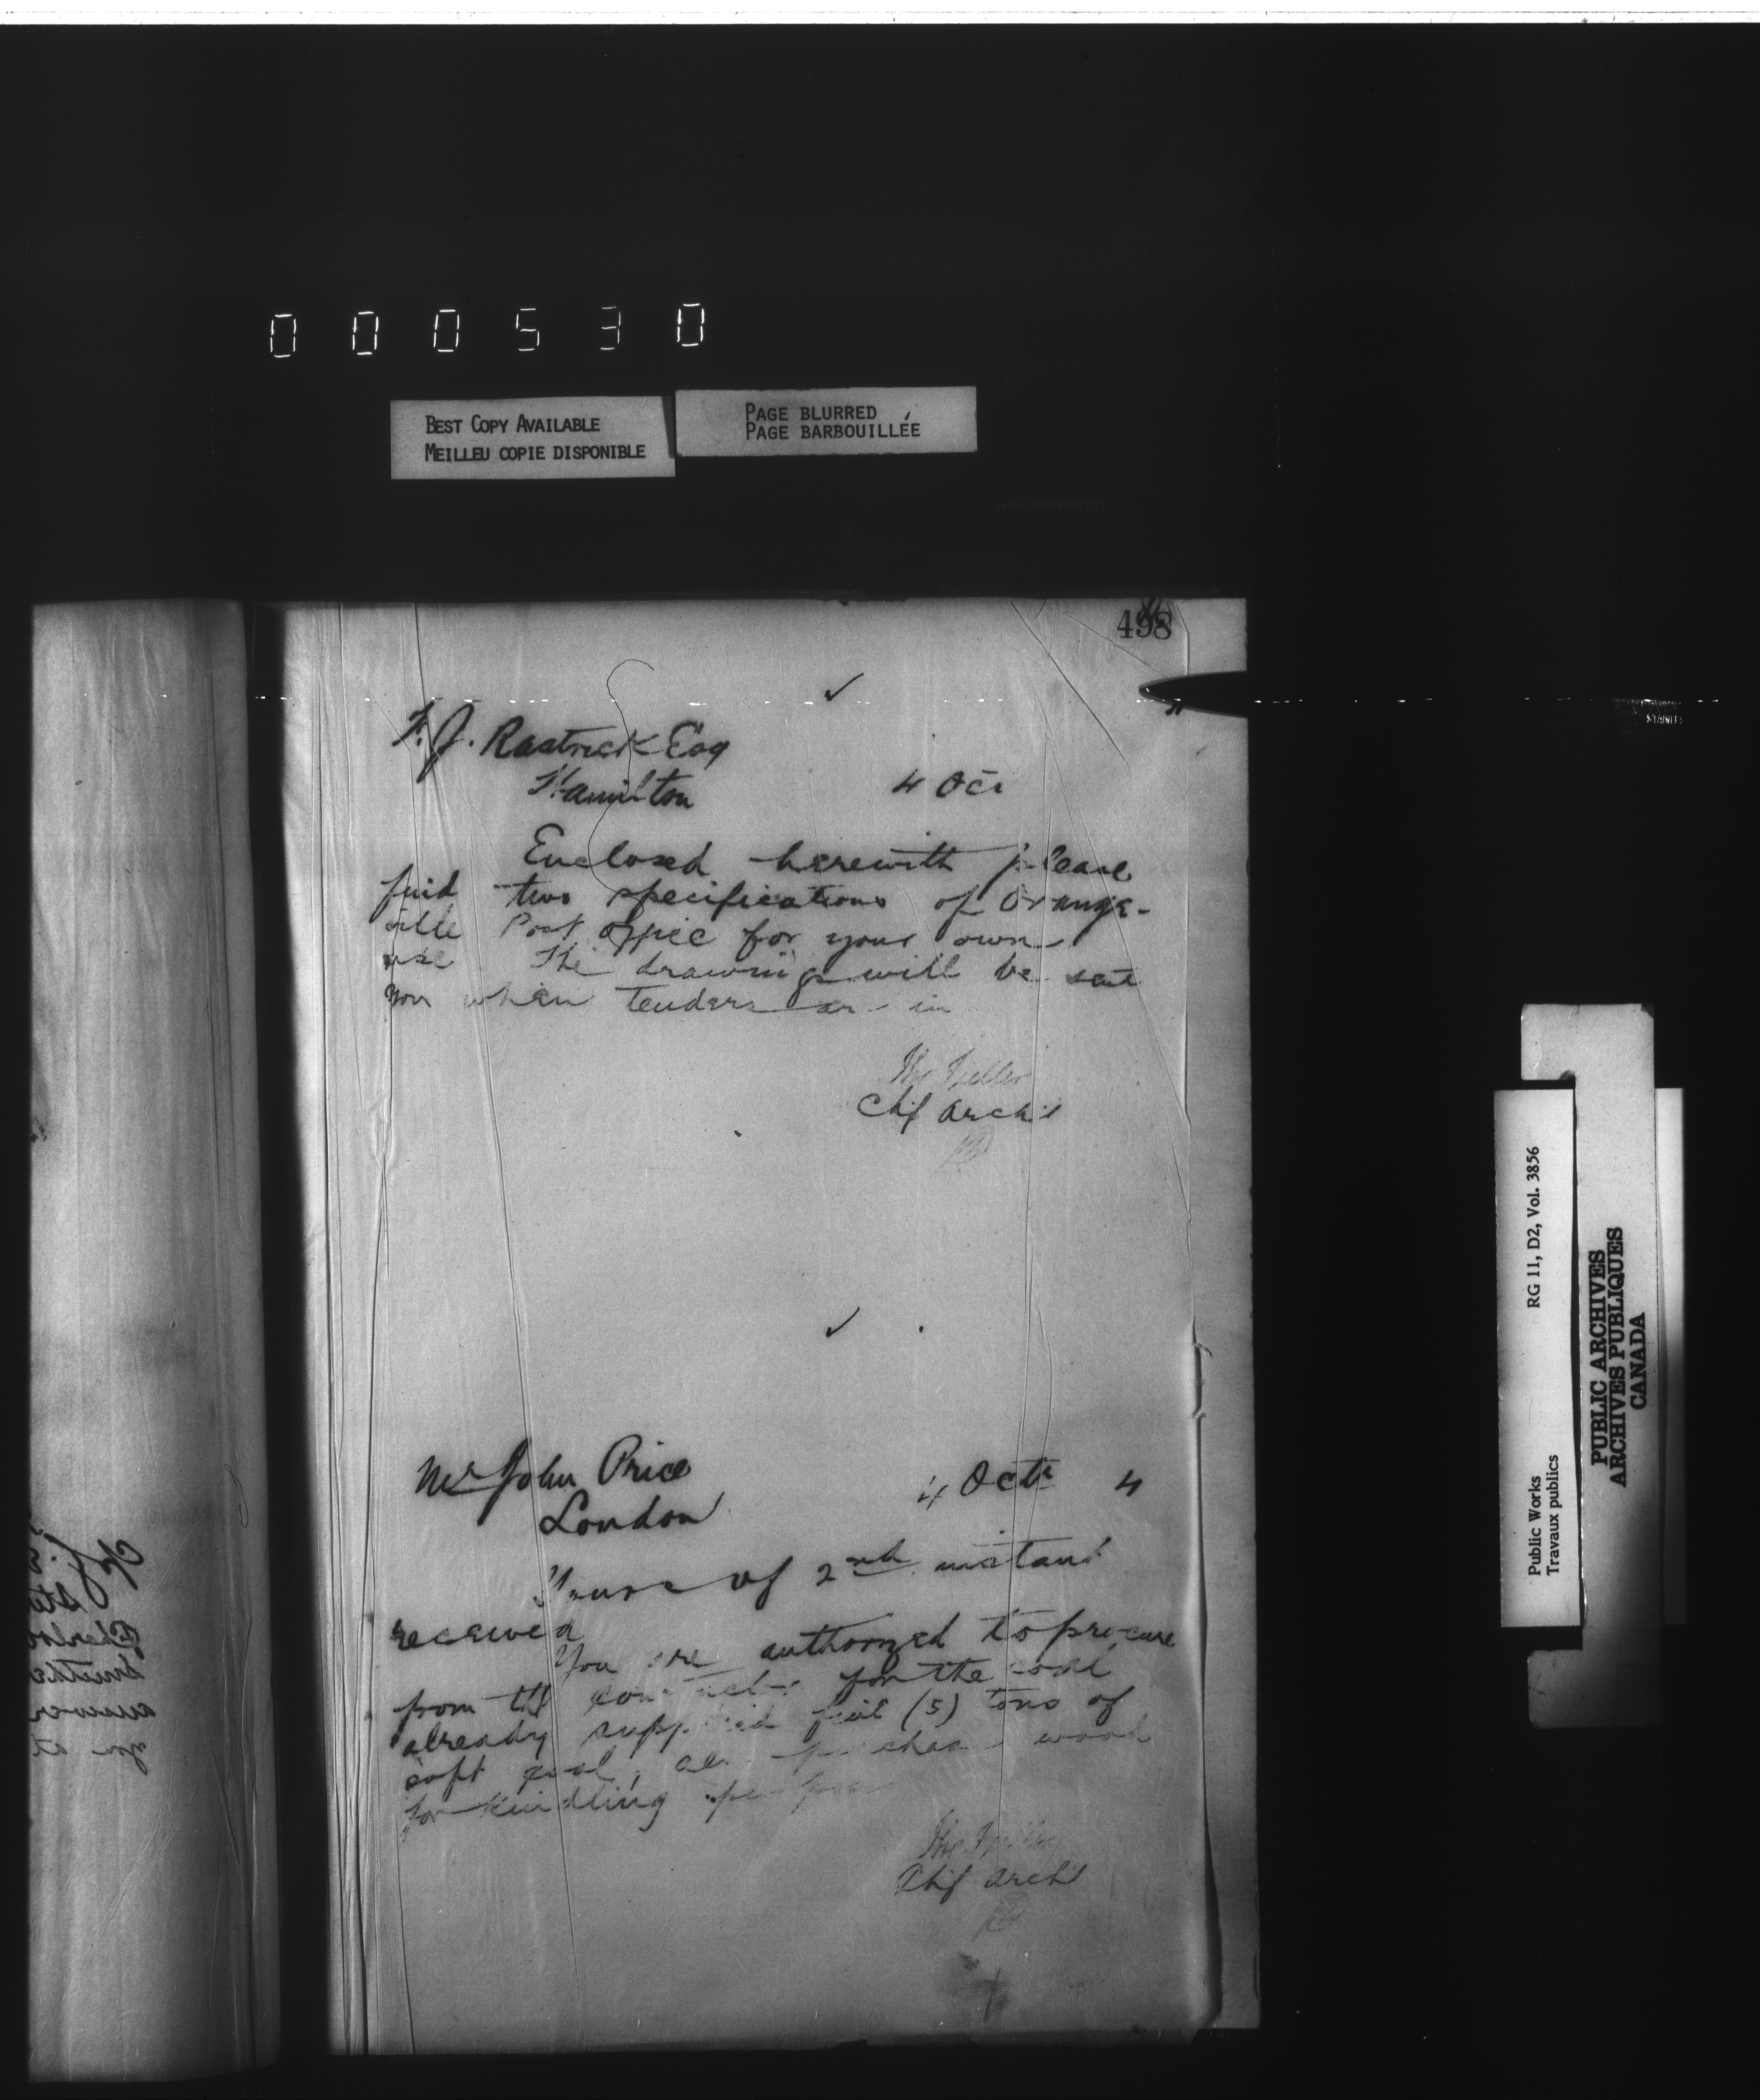 000530
BEST COPY AVAILABLE
MEILLEU COPIE DISPONIBLE
PAGE BLURRED
PAGE BARBOUILLÉE
498
F. J. Rastrick Esq
Hamilton
4 Oct
Enclosed herewith please
find two specifications of Orange-
ville Post Office for your own
use The drawings will be sent
you when tenders are in
Tho Fuller
Chf Archt
Mr John Price
London
4 Octr 4
Yours of 2nd instant
received
You are authorized to procure
from the contractor for the coal
already supplied five (5) tons of
soft coal, also purchase wood
for kindling
Tho Fuller
Chf Archt
Public Works
Travaux publics
RG 11, D2, Vol. 3856
PUBLIC ARCHIVES
ARCHIVES PUBLIQUES
CANADA